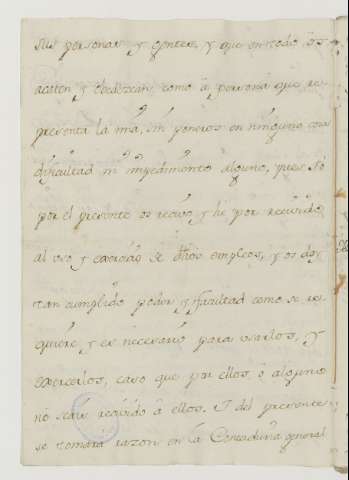 sus personas, y gentes, y que en todo os
acaten y obedezcan como à persona que re-
presenta la mia, sin poneros en ninguno
dificultad ni impedimento alguno, pues Yò
por el presente os recivo y hè por recivido
al uso y exercicio de dhos empleos, y os doy
tan cumplido poder y facultad como se re-
quiere y es necesario para usarlos, y
exercerlos, caso que por ellos, ò alguno
nò seais recivido à ellos. Y del presente
se tomarà razon en la Contaduria general